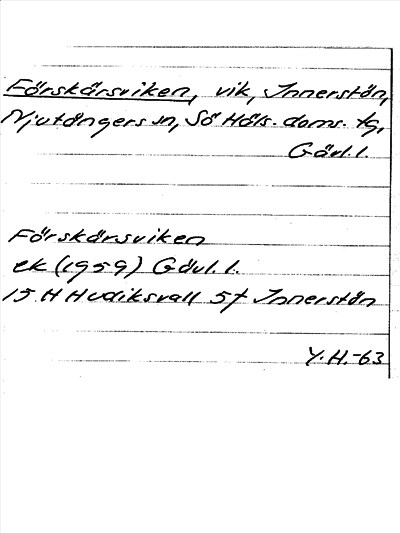 Förskärsviken, vik, Innerstön,
Njutångers sn, Sö Häls. doms. tg,
Gävl. l.
Förskärsviken
ek (1959) Gävl. l.
15 H Hudiksvall 5f Innerstön
Y. H.-63